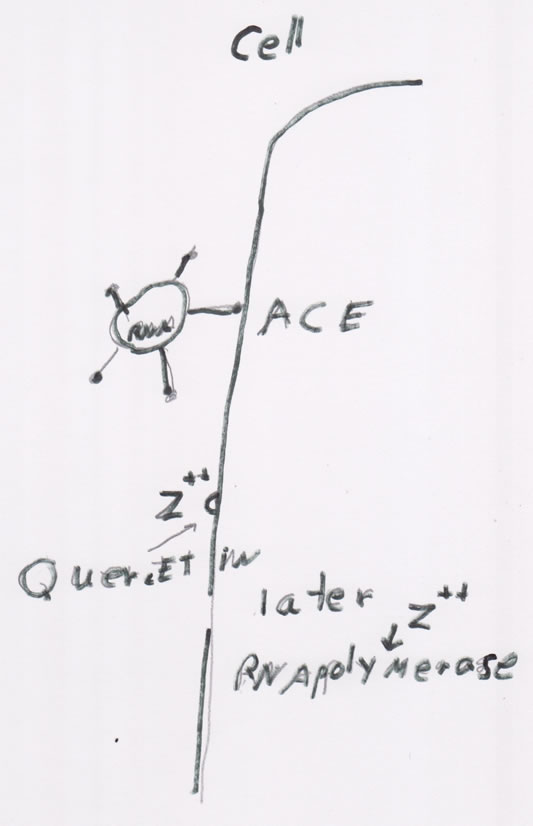 Cell
ACE
Z++
QuercETin
later
Z++
RNApolyMerase